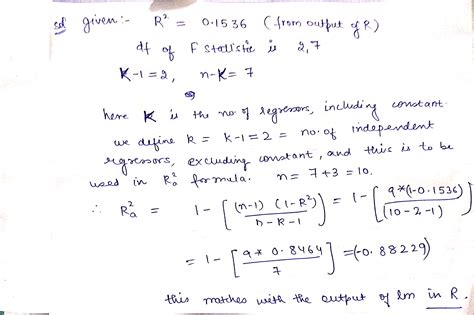 sol given:- R² = 0.1536 (from output of R)
df of F statistic is 2,7
K-1=2, n-K=7
here K is the no of regressors, including constant.
we define k = k-1=2 = no. of independent
regressors, excluding constant, and this is to be
used in R²a formula. n= 7+3=10.
∴ R²a = 1 - [(n-1) (1-R²) / n-k-1] = 1 - [9*(1-0.1536) / (10-2-1)]
= 1 - [9* 0.8464 / 7] = (-0.88229)
this matches with the output of lm in R.